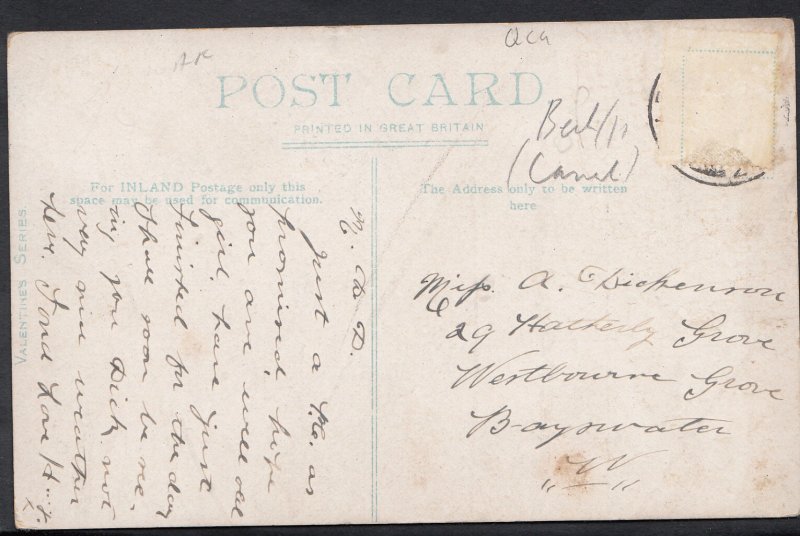 POST CARD
PRINTED IN GREAT BRITAIN
For INLAND Postage only this
space may be used for communication.
The Address only to be written
here
VALENTINES SERIES.
M. D. D.
Just a P.C. as
promised hope
you are well old
girl. have just
finished for the day
Shall soon be see-
ing you Dick, not
very nice weather
here. Fond Love H
x
Miss A. Dickenson
29 Hatherly Grove
Westbourne Grove
Bayswater
„ W „